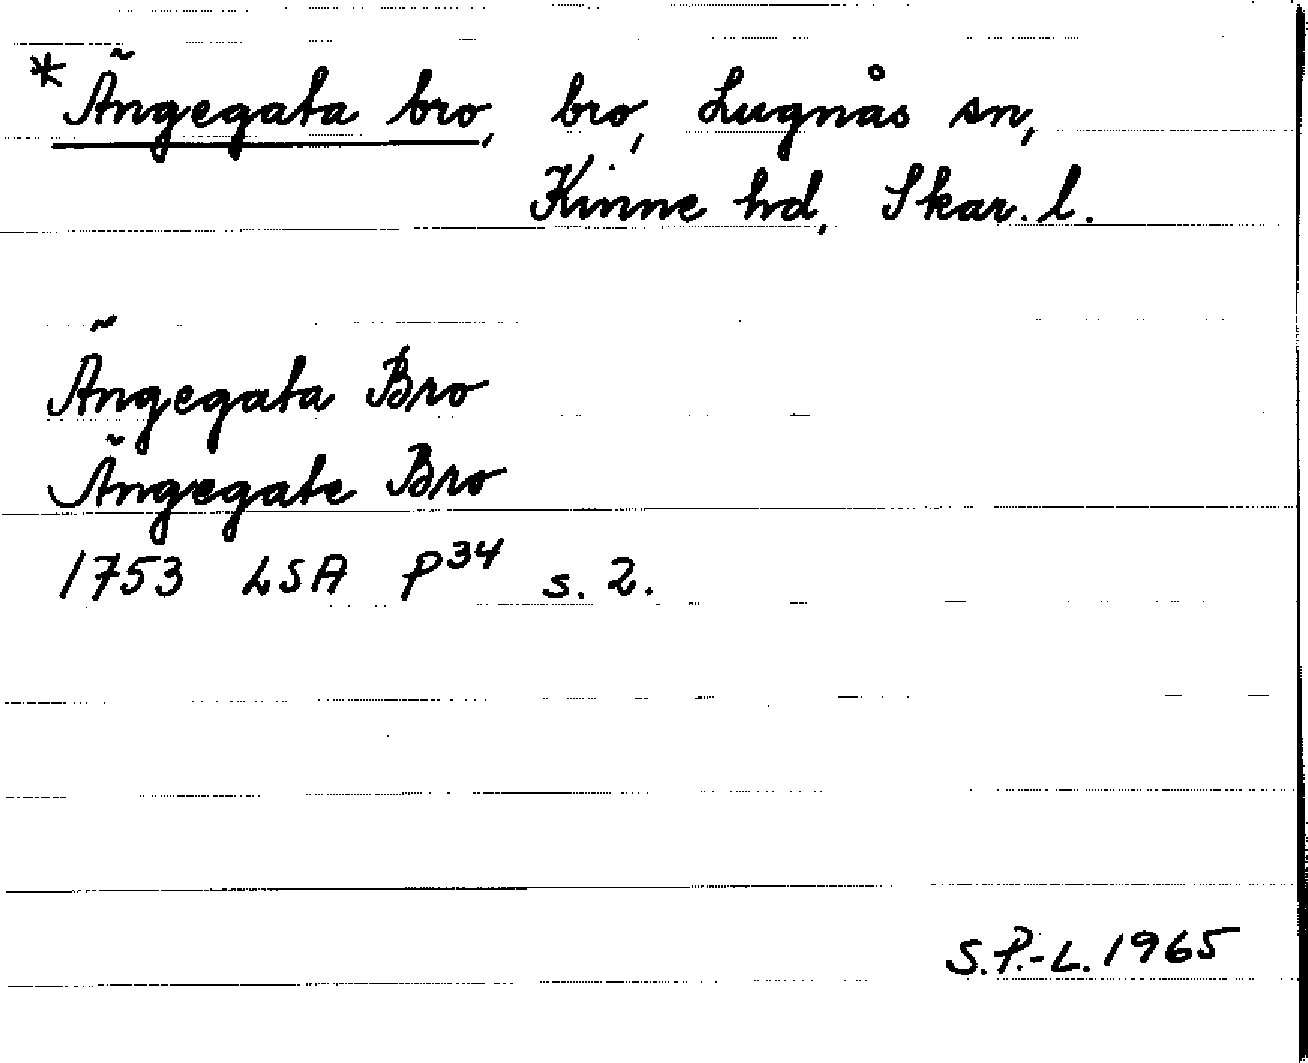 *Ängegata bro, bro, Lugnås sn,
Kinne hd, Skar. l.
Ängegata Bro
Ängegate Bro
1753 LSA P³⁴ s. 2.
S.P.-L. 1965